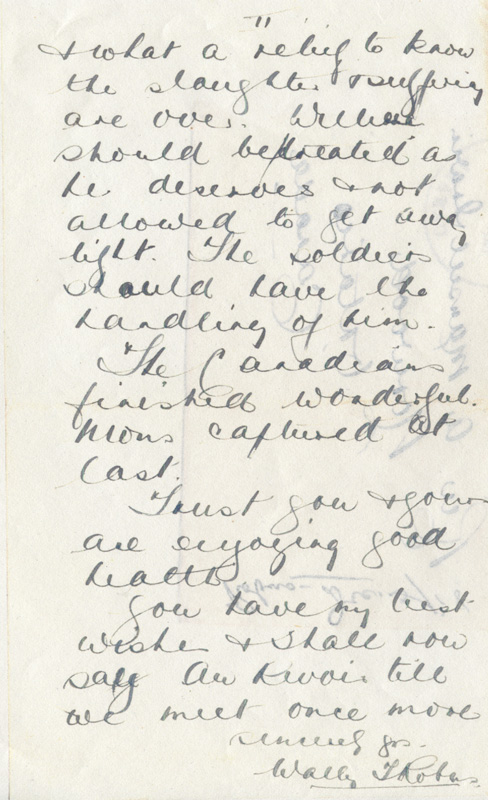 11
& what a relief to know
the slaughter & suffering
are over. Wilhelm
should be treated as
he deserves & not
allowed to get away
light. The soldiers
should have the
handling of him.
The Canadians
finished wonderful.
Mons captured at
last.
Trust you & yours
are enjoying good
health
You have my best
wishes & shall now
say Au Revoir till
we meet once more
sincerely yrs.
Wally